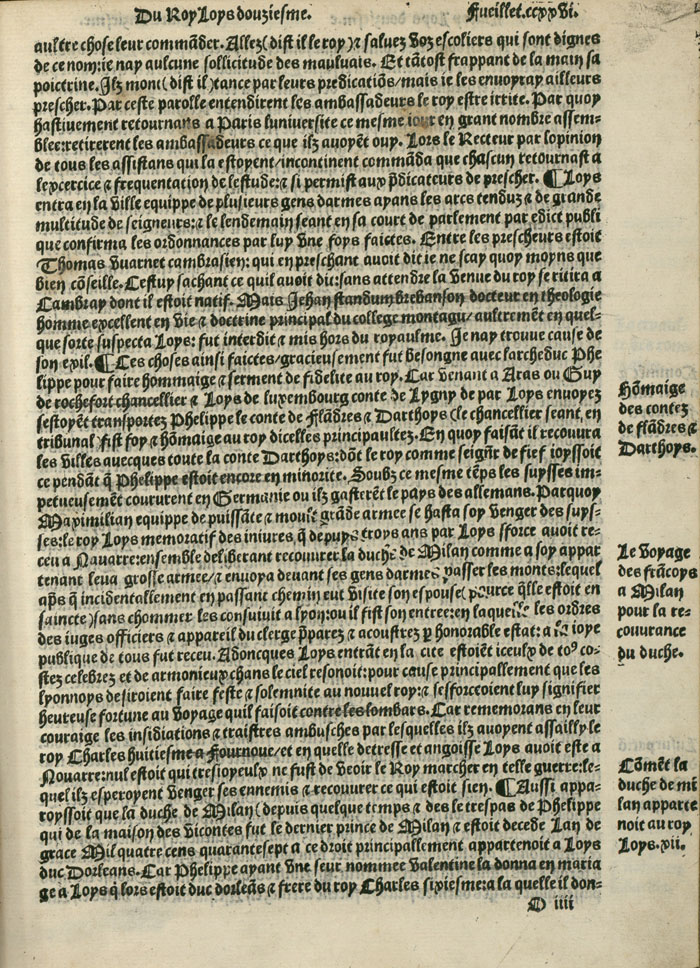 Du Roy Loys douziesme.
Fueillet.ccxxvi.
aultre chose leur commãder. Allez (dist il le roy) ⁊ saluez voz escoliers qui sont dignes
de ce nom:ie nay aulcune sollicitude des mauluais. Et tãtost frappant de la main sa
poictrine. Ilz mont (dist il) tance par leurs predicatiõs/mais ie les enuoyray ailleurs
prescher. Par ceste parolle entendirent les ambassadeurs le roy estre irrite. Par quoy
hastiuement retournans a Paris luniuersite ce mesme iour en grant nombre assem-
blee:retirerent les ambassadeurs ce que ilz auoyẽt ouy. Lors le Recteur par lopinion
de tous les assistans qui la estoyent/incontinent commãda que chascun retournast a
lexcercice ⁊ frequentation de lestude:⁊ si permist aux p̃dicateurs de prescher. ¶Loys
entra en la ville equippe de plusieurs gens darmes ayans les arcs tenduz ⁊ de grande
multitude de seigneurs:⁊ le lendemain seant en sa court de parlement par edict publi
que confirma les ordonnances par luy vne foys faictes. Entre les prescheurs estoit
Thomas vuarnet cambrasien: qui en preschant auoit dit ie ne scay quoy moyns que
bien cõseille. Cestuy sachant ce quil auoit dit:sans attendre la venue du roy se ritira a
Cambray dont il estoit natif. Mais Jehan standum brebanson docteur en theologie
homme excellent en vie ⁊ doctrine principal du college montagu/aultremẽt en quel-
que sorte suspecta Loys: fut interdit ⁊ mis hors du royaulme. Je nay trouue cause de
son exil. ¶Ces choses ainsi faictes/gracieusement fut besongne auec larcheduc Phe
lippe pour faire hommaige ⁊ serment de fidelite au roy. Car venant a Aras ou Guy
de rochefort chancellier ⁊ Loys de luxembourg conte de Lygny de par Loys enuoyez
sestoyẽt transportez Phelippe le conte de Flãdres ⁊ Darthoys (le chancellier seant, en
tribunal) fist foy ⁊ hõmaige au roy dicelles principaultez. En quoy faisãt il recouura
les villes auecques toute la conte Darthoys:dõt le roy comme seignr̃ de fief ioyssoit
ce pendãt q̃ Phelippe estoit encore en minorite. Soubz ce mesme tẽps les suysses im-
petueusemẽt coururent en Germanie ou ilz gasterẽt le pays des allemans. Parquoy
Maximilian equippe de puissãte ⁊ moult grãde armee se hasta soy venger des suys-
ses:le roy Loys memoratif des iniures q̃ depuys troys ans par Loys sforce auoit re-
ceu a Nauarre:ensemble deliberant recouurer la duche de Milan comme a soy appar
tenant leua grosse armee/⁊ enuoya deuant ses gens darmes passer les monts:lequel
ap̃s q̃ incidentallement en passant chemin eut visite son espouse (pource q̃lle estoit en
saincte) sans chommer les consuiuit a lyon:ou il fist son entree:en laquelle les ordres
des iuges officiers ⁊ appareil du clerge p̃parez ⁊ acoustrez p̱ honorable estat: a la ioye
publique de tous fut receu. Adoncques Loys entrãt en la cite estoiẽt iceulx de toꝰ co-
stez celebrez et de armonieux chans le ciel resonoit:pour cause principallement que les
lyonnoys desiroient faire feste ⁊ solemnite au nouuel roy:⁊ sesforceoient luy signifier
heureuse fortune au voyage quil faisoit contre les lombars. Car rememorans en leur
couraige les insidiations ⁊ traistres ambusches par lesquelles ilz auoyent assailly le
roy Charles huitiesme a Fournoue/et en quelle detresse et angoisse Loys auoit este a
Nouarre:nul estoit qui tresioyeulx ne fust de veoir le Roy marcher en telle guerre:le-
quel ilz esperoyent venger ses ennemis ⁊ recouurer ce qui estoit sien. ¶Aussi appa-
royssoit que la duche de Milan (depuis quelque temps ⁊ des le trespas de Phelippe
qui de la maison des vicontes fut le dernier prince de Milan ⁊ estoit decede Lan de
grace Mil quatre cens quarantesept a ce droit principallement appartenoit a Loys
duc Dorleans. Car Phelippe ayant vne seur nommee Valentine la donna en maria
ge a Loys q̃ lors estoit duc dorleãs ⁊ frere du roy Charles sixiesme:a la quelle il don-
O iiii
Hõmaige
des contez
de flãdres ⁊
Darthoys.
Le voyage
des frãcoys
a Milan
pour la re-
couurance
du duche.
Cõmẽt la
duche de mi
lan apparte
noit au roy
Loys.xii.